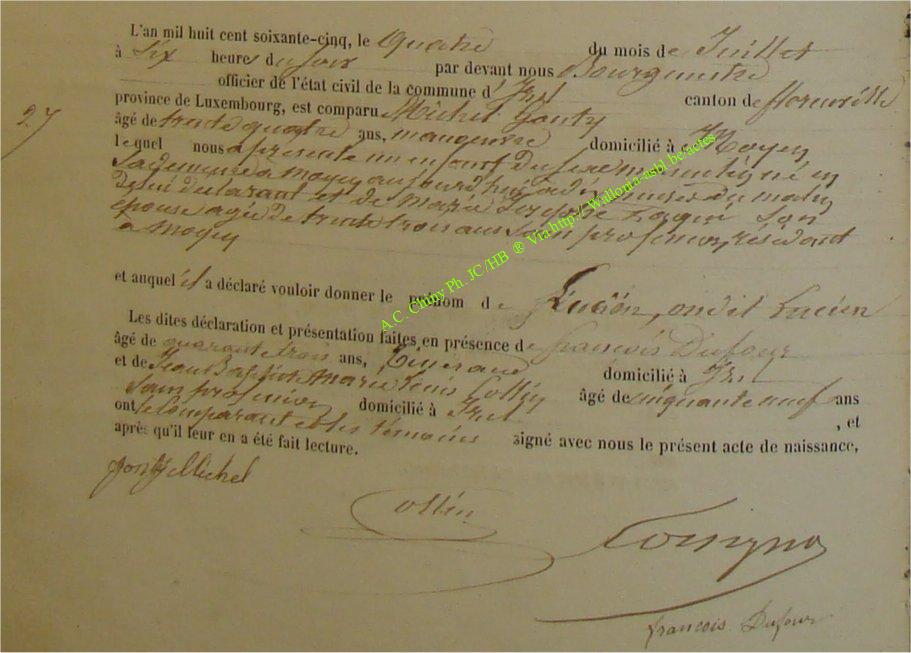 L'an mil huit cent soixante-cinq, le quatre du mois de Juillet
à Six heures du soir par devant nous Bourgmestre
officier de l'état civil de la commune d'Izel canton de florenville
27
province de Luxembourg, est comparu Michel Gonty
âgé de trente quatre ans, manoeuvre domicilié à Moyen
lequel nous a présenté un enfant du sexe masculin né en
Sa demeure à moyen aujourd'hui à heures du matin
De lui déclarant et de Marie Josephe Son
épouse agée de trente trois ans Sans profession, résidant
à Moyen
et auquel il a déclaré vouloir donner le prénom de Lucien
Les dites déclaration et présentation faites en présence de francois Dufour
âgé de quarante trois ans, Tisserand domicilié à Izel
et de Jean Baptiste Marie Collin âgé de cinquante neuf ans
Sans profession domicilié à Izel , et
ont le Comparant et les témoins signé avec nous le présent acte de naissance,
après qu'il leur en a été fait lecture.
gonty Michel
Collin
francois Dufour
A.C. Chiny Ph. JC/HB ® Via http://Wallonia-asbl.be/actes